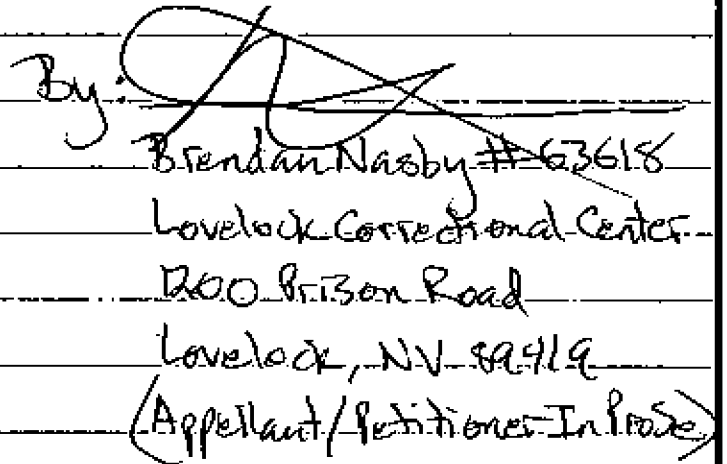 By:
Brendan Nasby #63618
Lovelock Correctional Center
1200 Prison Road
Lovelock, NV 89419
(Appellant/Petitioner-In ProSe)